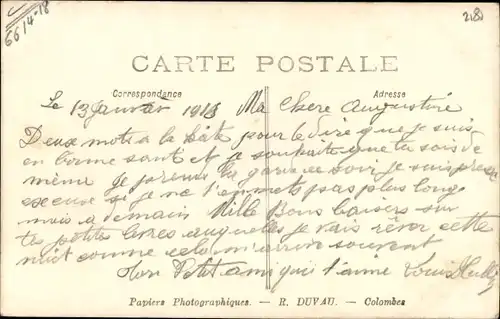 6614-18
218
CARTE POSTALE
Correspondance
Adresse
Le 13 Janvier 1918 Ma Chere Augustine
Deux mots a la hâte pour te dire que je suis
en bonne sant et je souhaite que tu sois de
même Je prends la garde ce soir je suis pressé
excuse si je ne t'en mets pas plus long
mais a demain Mille Bons baisers sur
tes petites levres auquelles je vais rever cette
nuit comme cela m'arrive souvent
Ton Petit ami qui t'aime Louis
Papiers Photographiques. — R. DUVAU. — Colombes